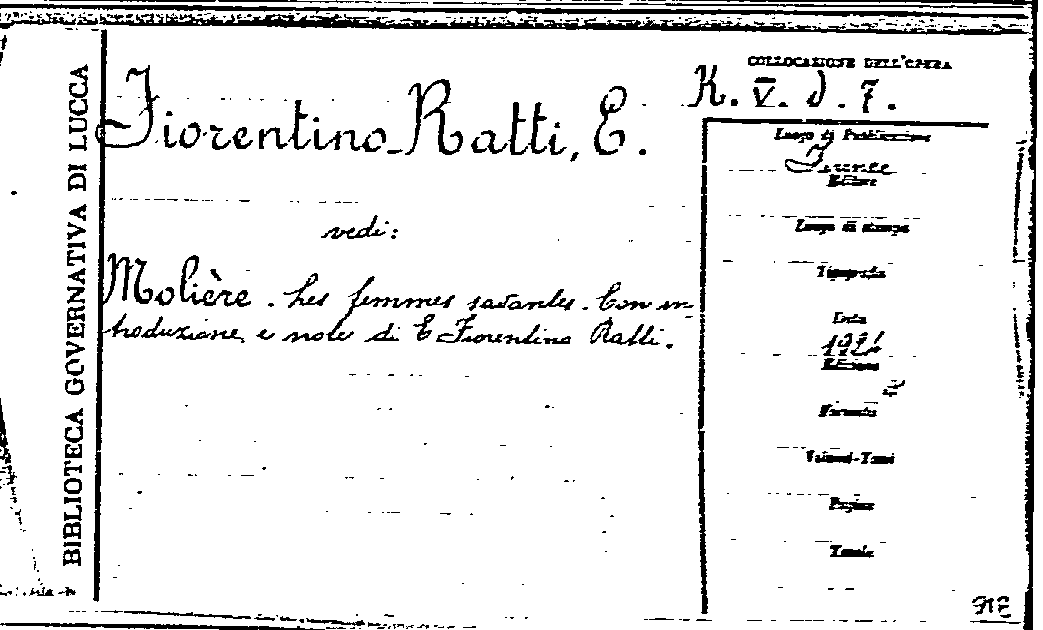 BIBLIOTECA GOVERNATIVA DI LUCCA
Fiorentino-Ratti, E.
vedi:
Molière. Les femmes savantes. Con in-
troduzione e note di E Fiorentino Ratti.
COLLOCAZIONE DELL'OPERA
K. V. d. 7.
Luogo di Pubblicazione
Firenze
Editore
Luogo di stampa
Tipografia
Data
Edizione
Formato
Volumi-Tomi
Pagine
Tavole